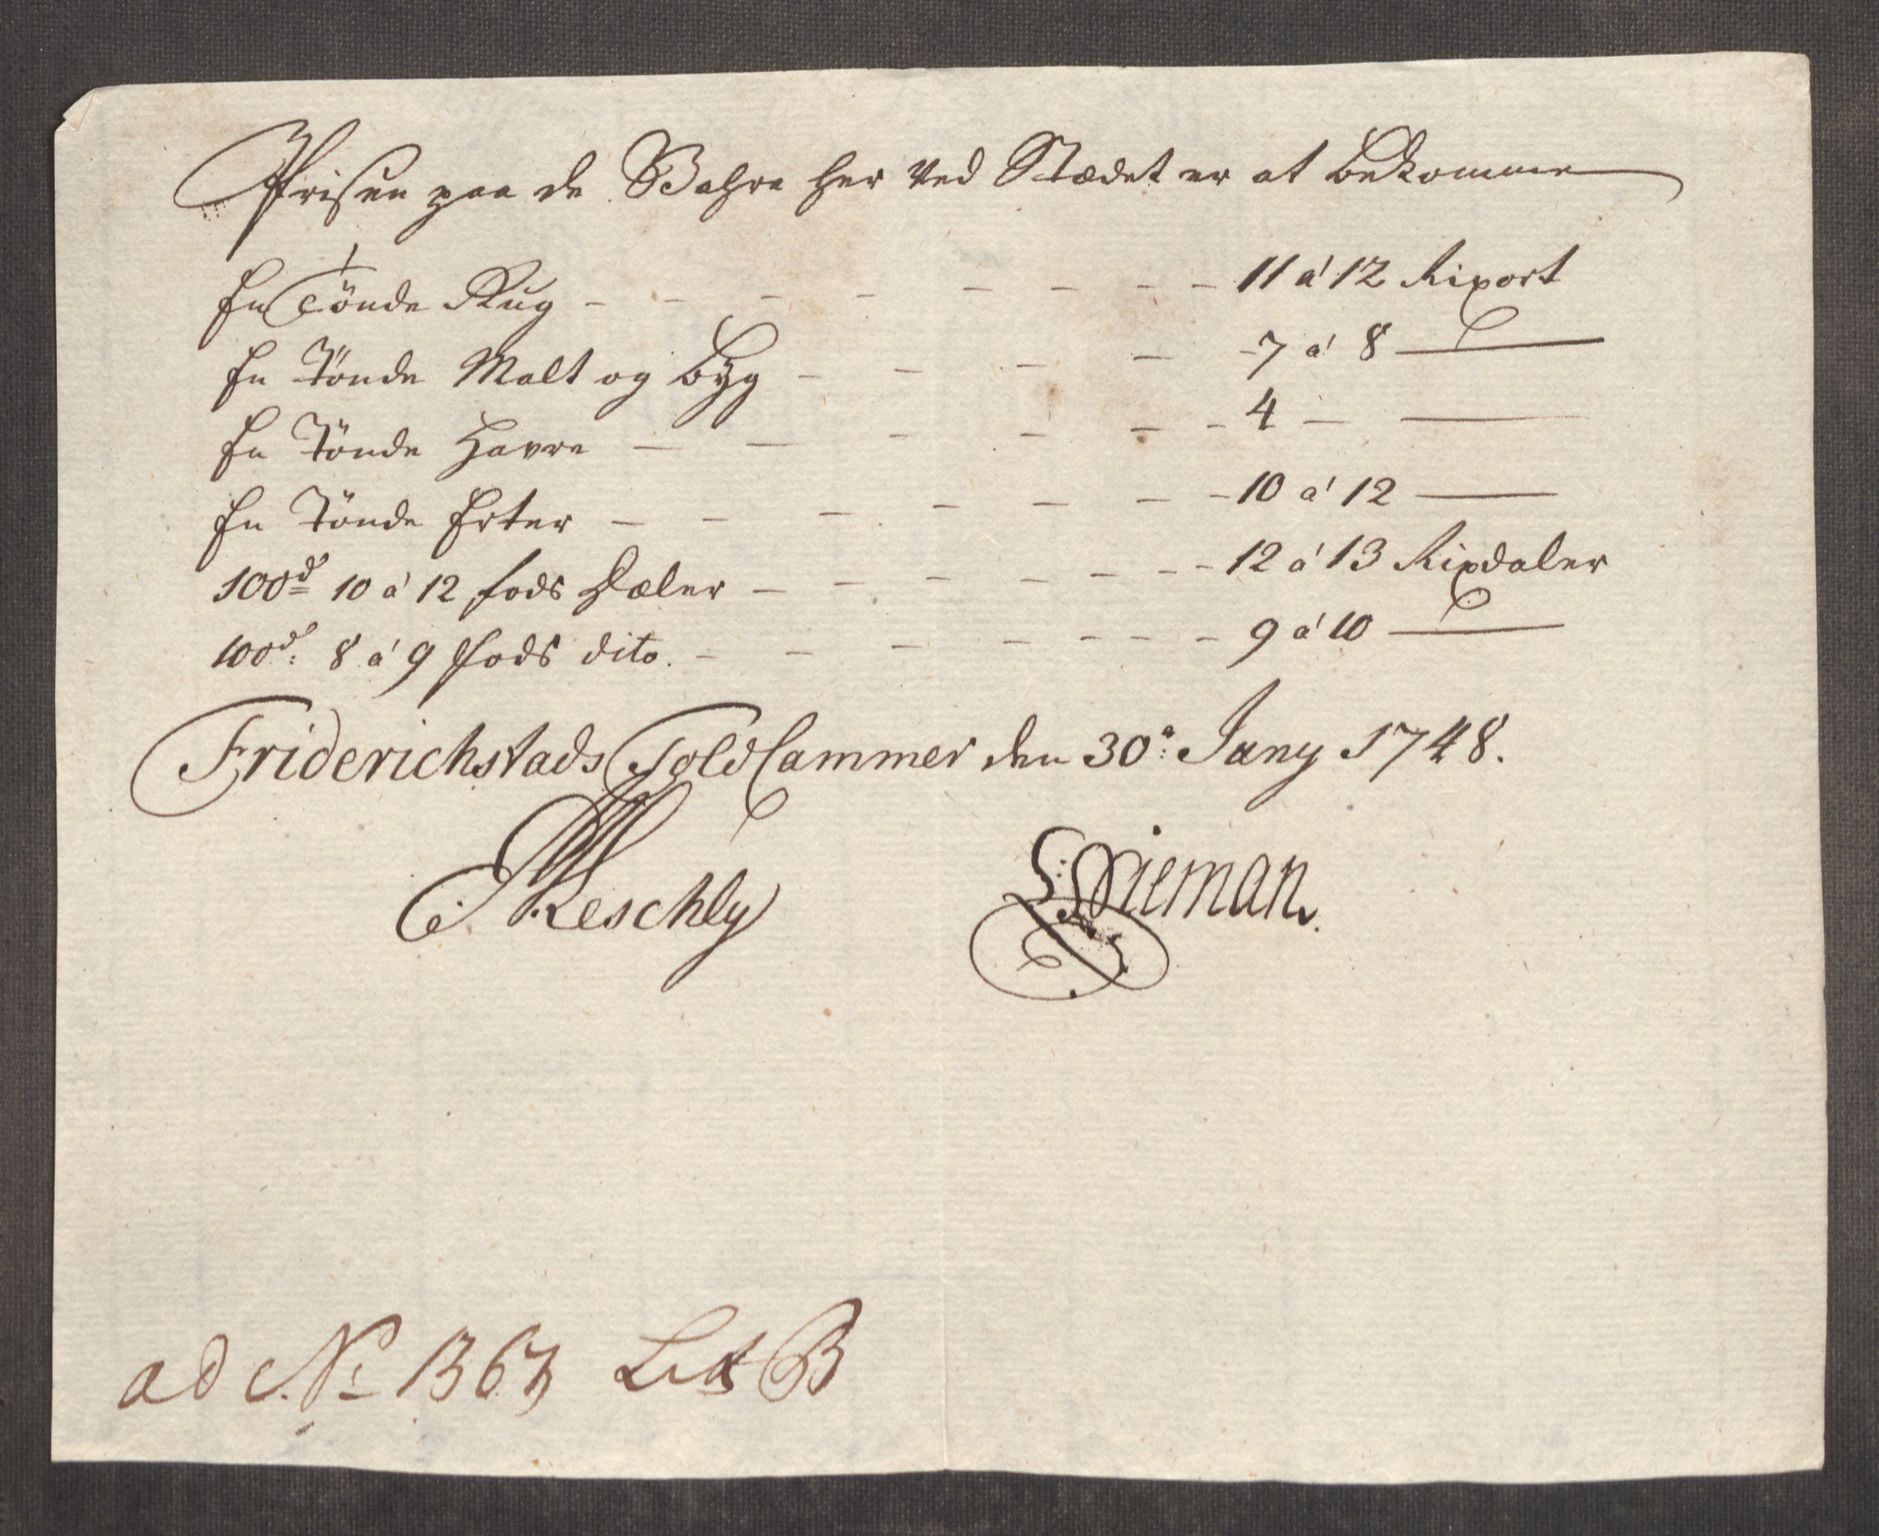 Prisen paa de Wahre her ved Stædet er at bekomme
En Tönde Rug - - - - - - - - - 11 á 12 Rixort
En Tönde Malt og byg - - - - - 7 á 8 ———
En Tönde Havre - - - - - - - 4 — ———
En Tönde Erter - - - - - - - - 10 á 12 ———
100d 10 á 12 fods Dæler - - - - - - - 12 á 13 Rixdaler
100d: 8 á 9 fods dito. - - - - - - - - 9 á 10 ———
Friderichstads Told Cammer den 30: Juny 1748.
Reschly Nieman.
ad No 1363 Lit B